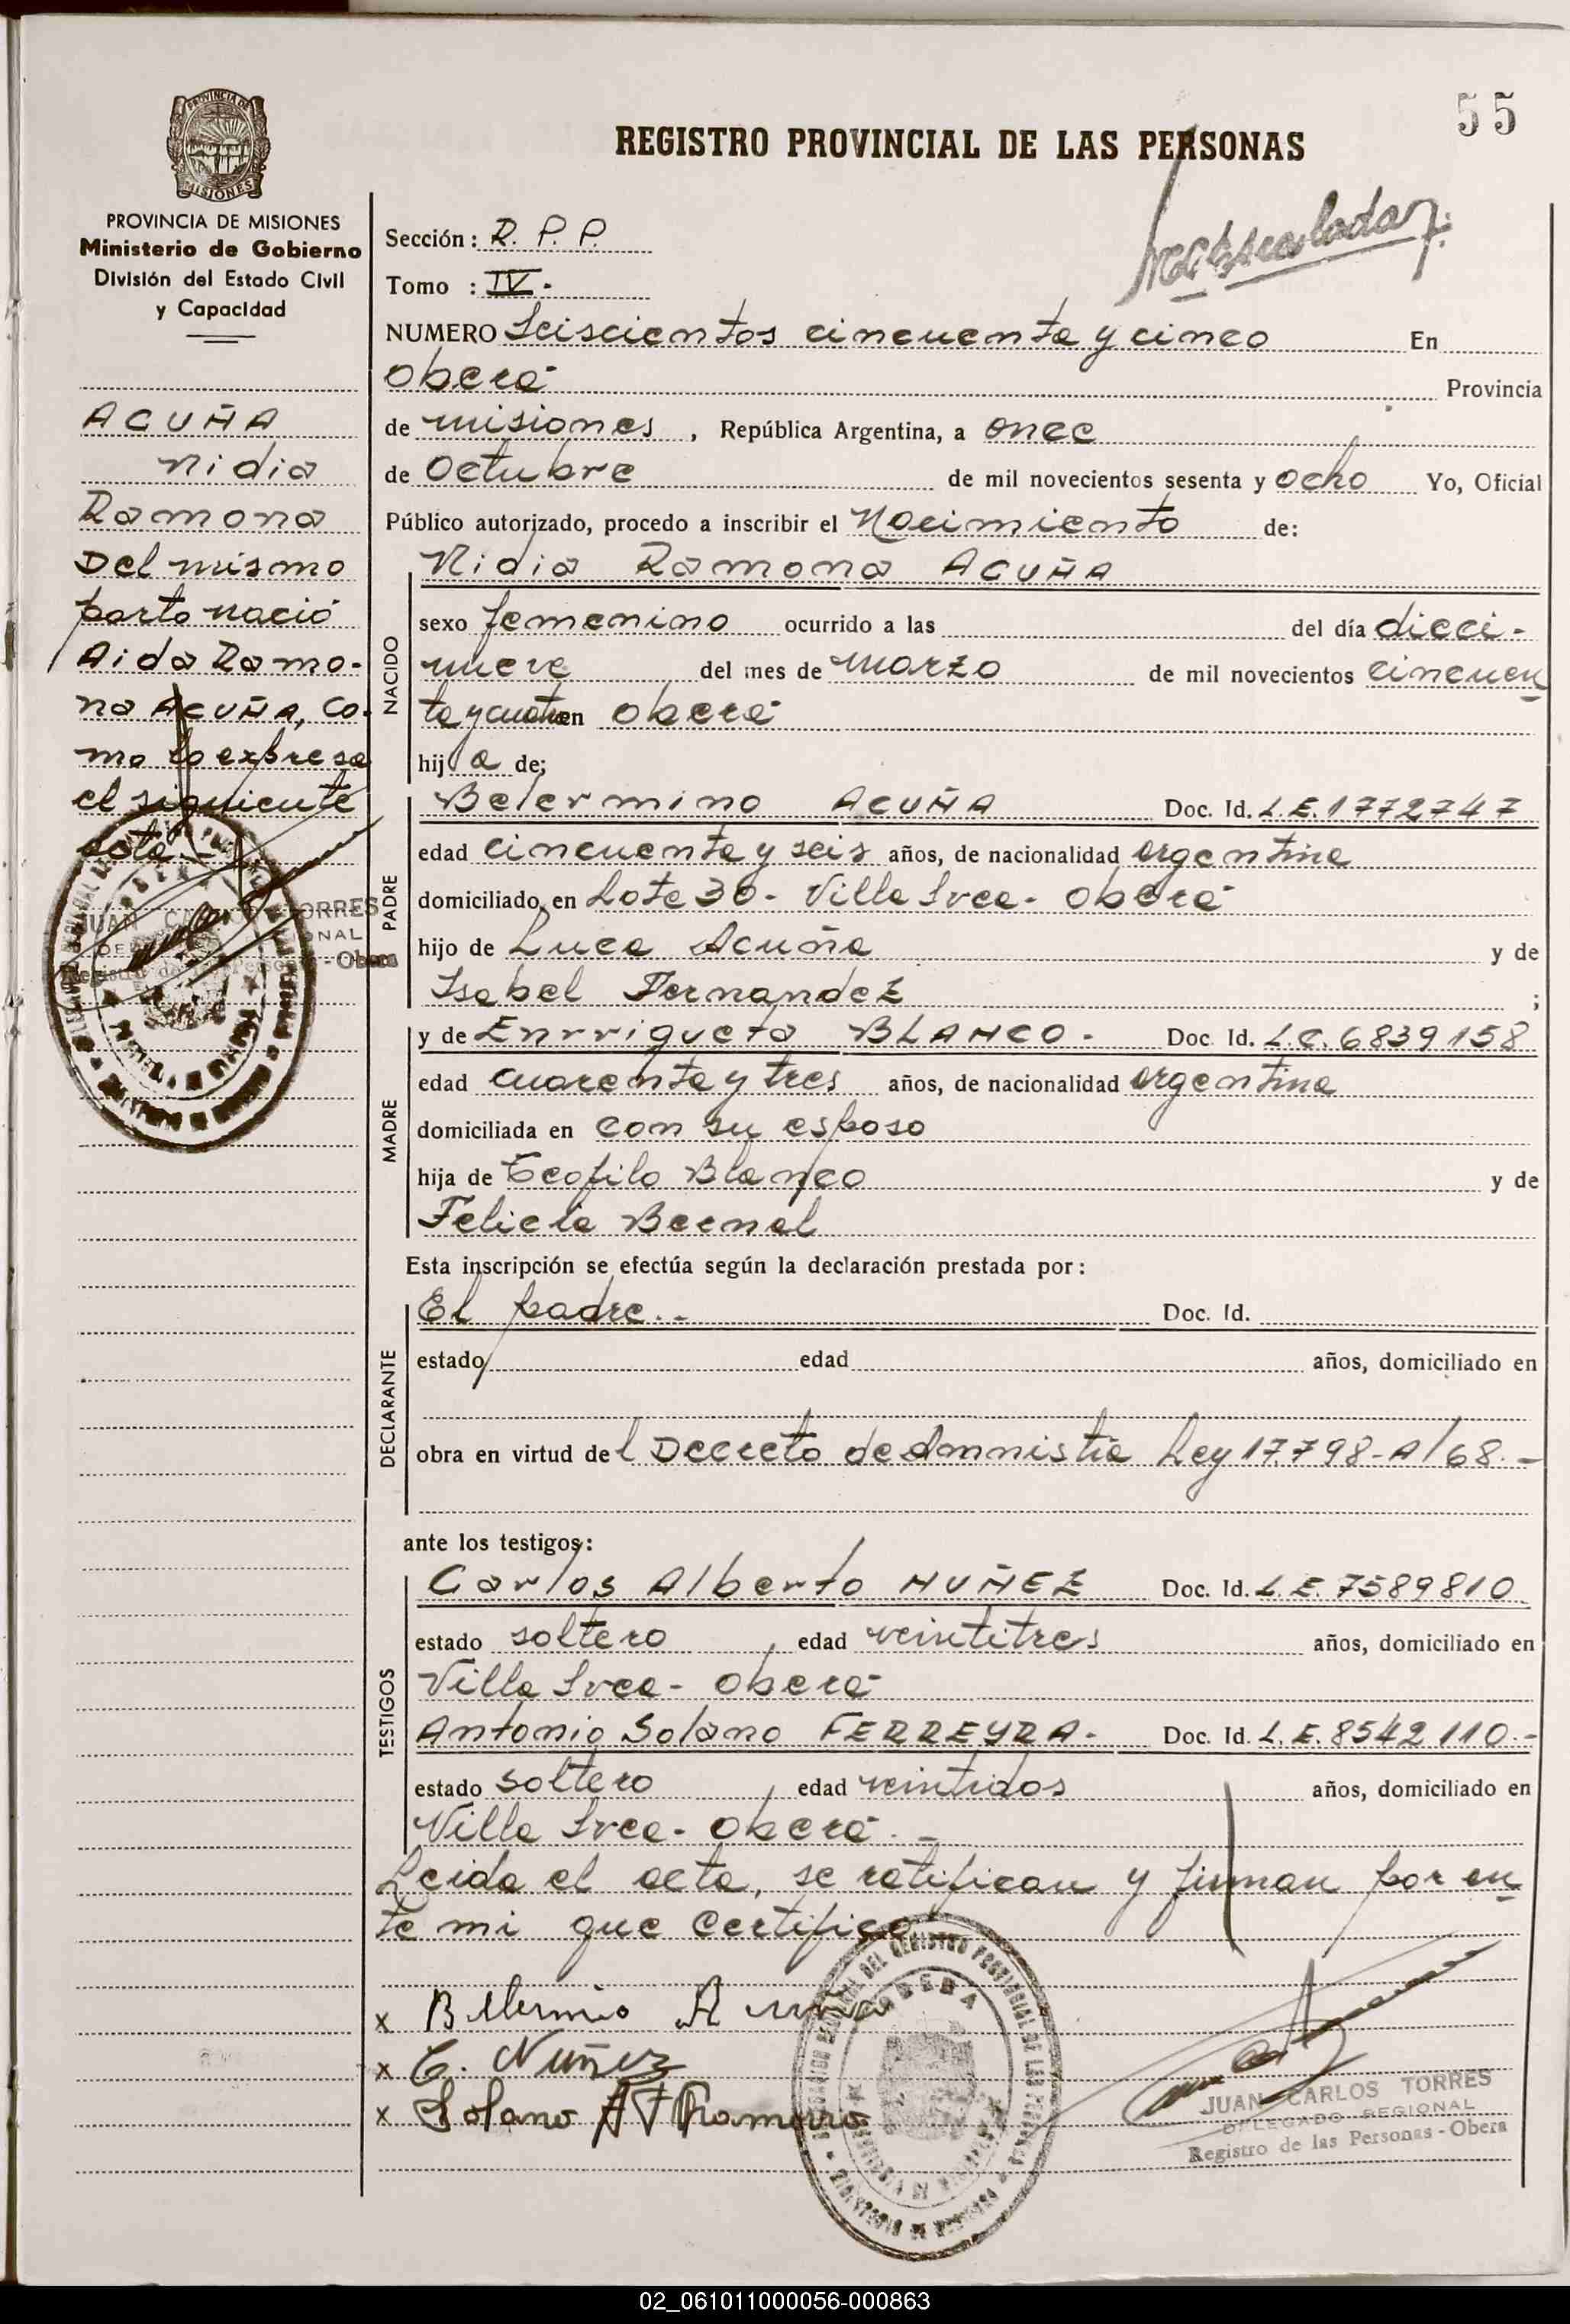 55
REGISTRO PROVINCIAL DE LAS PERSONAS
PROVINCIA DE MISIONES
Ministerio de Gobierno
División del Estado Civil
y Capacidad
ACUÑA
Nidia
Ramona
Del mismo
parto nació
Aida Ramo-
na ACUÑA, Co-
mo lo expresa
el siguiente
acta.-
Sección: R. P. P.
Tomo : IV.
NUMERO Seiscientos cincuenta y cinco En
Oberá Provincia
de Misiones, República Argentina, a once
de Octubre de mil novecientos sesenta y ocho Yo, Oficial
Público autorizado, procedo a inscribir el Nacimiento de:
NACIDO
Nidia Ramona ACUÑA
sexo femenino ocurrido a las del día dieci-
nueve del mes de marzo de mil novecientos cincuen
ta y cuatro en Oberá
hija de;
PADRE
Belermino ACUÑA Doc. Id. L.E. 1772747
edad cincuenta y seis años, de nacionalidad argentina
domiciliado en Lote 30- Villa Svea- Oberá
hijo de Luca Acuña y de
Isabel Fernandez ;
MADRE
y de Enrriqueta BLANCO.- Doc. Id. L.C. 6839158
edad cuarenta y tres años, de nacionalidad argentina
domiciliada en con su esposo
hija de Teofilo Blanco y de
Felicia Bernal
Esta inscripción se efectúa según la declaración prestada por:
DECLARANTE
El padre.- Doc. Id.
estado edad años, domiciliado en
obra en virtud del Decreto de Amnistia Ley 17.798-A/68.-
ante los testigos:
TESTIGOS
Carlos Alberto NUÑEZ Doc. Id. L.E. 7589810
estado soltero, edad veintitres años, domiciliado en
Villa Svea- Oberá
Antonio Solano FERREYRA.- Doc. Id. L.E. 8542110.-
estado soltero, edad veintidos años, domiciliado en
Villa Svea- Oberá.-
Leida el acta, se ratifican y firman por an
te mi que certifico
x
x C. Nuñez
x Solano
JUAN CARLOS TORRES
DELEGADO REGIONAL
Registro de las Personas - Obera
JUAN CARLOS TORRES
DELEGADO REGIONAL
Registro de las Personas - Obera
02_061011000056-000863